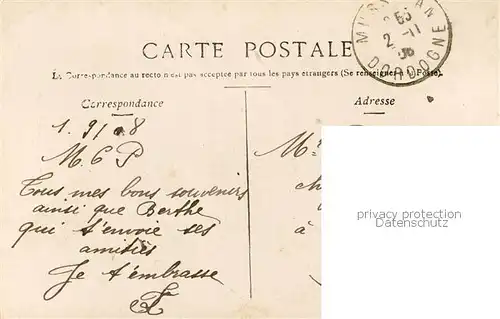 CARTE POSTALE
La Correspondance au recto n'est pas acceptée par tous les pays étrangers (Se renseigner à la Poste).
DORDOGNE
Correspondance
Adresse
M. G P
Tous mes bons souvenirs
ainsi que Berthe
qui t'envoie ses
amitiés
Je t'embrasse
à
privacy protection
Datenschutz